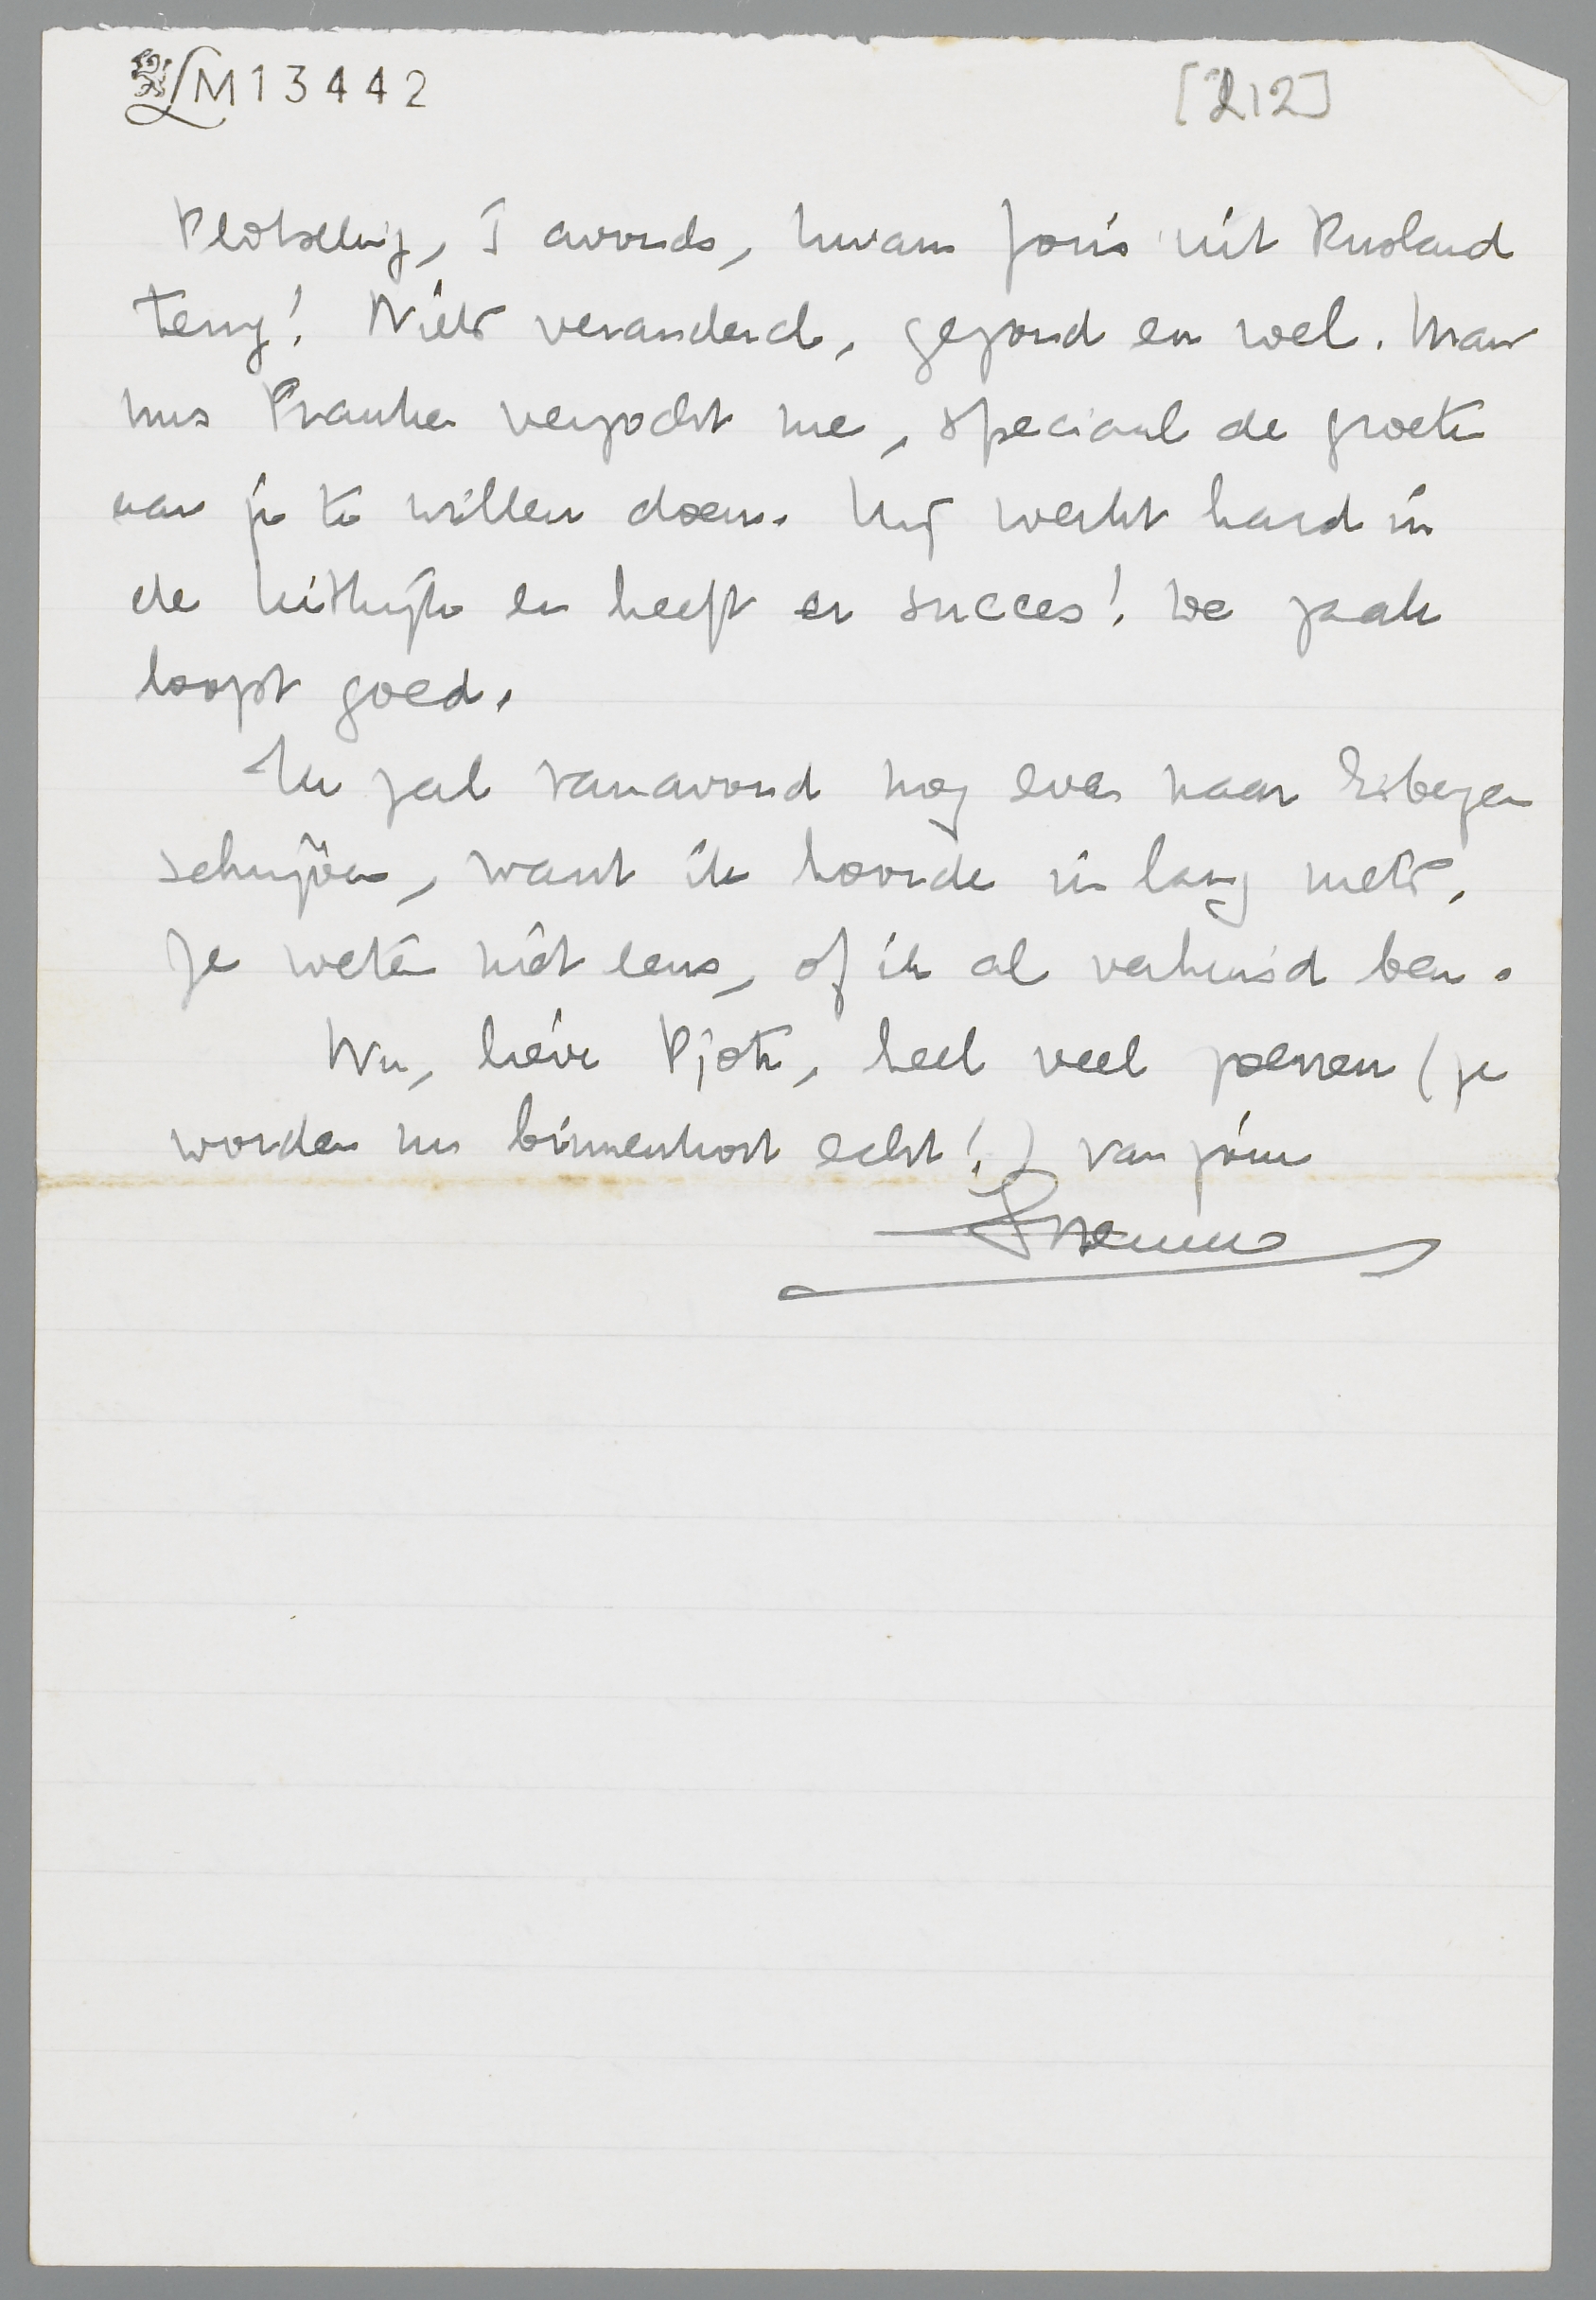 LM13442
[212]
Plotseling, 's avonds, kwam Joris uit Rusland
terug! Niets veranderd, gezond en wel.
Franken verzocht me, speciaal de groeten
aan je te willen doen. Hij werkt hard in
de en heeft er succes! De zaak
loopt goed.
Ik zal vanavond nog even naar Eibergen
schrijven, want ik hoorde in lang niets.
Ze weten niet eens, of ik al verhuisd ben.
Nu, lieve Pjotr, heel veel zoenen (ze
worden nu binnenkort echt!) van jouw